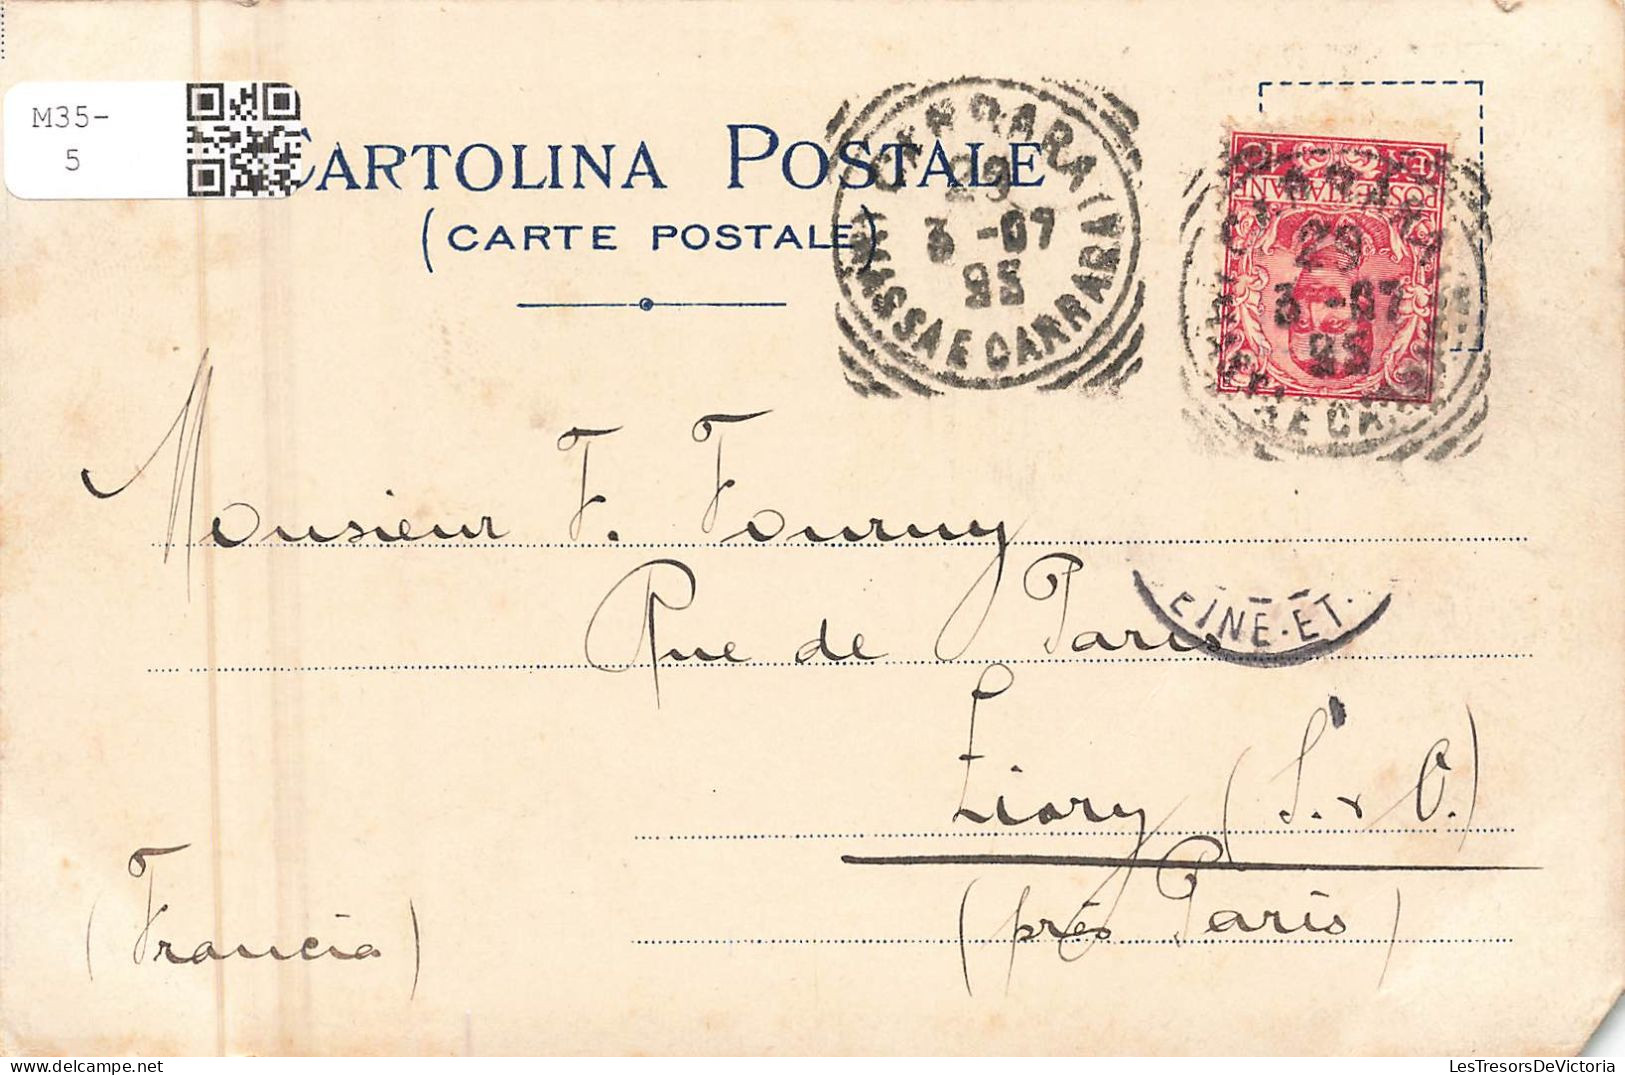 M35-
5
CARTOLINA POSTALE
(CARTE POSTALE)
CARRARA
29
3 -07
9S
MASSA E CARRARA
POSTE ITALIANE
29
3 -07
9S
Monsieur F. Fourny
Rue de Paris
EINE·ET·
(S. & O.)
(près Paris)
(Francia)
LesTresorsDeVictoria